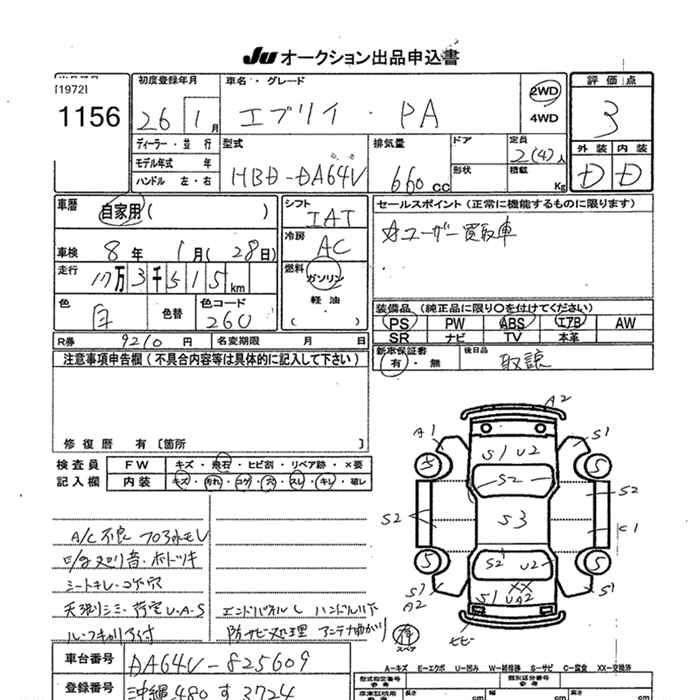 Ju オークション出品申込書
[1972]
1156
初度登録年月
26 1月
車名・グレード
エブリイ・PA
2WD
4WD
評価点
3
外装 内装
D D
ディーラー・並行
モデル年式 年
ハンドル 左・右
型式
HBD-DA64V
排気量
660cc
ドア
形状
定員
2(4)人
積載
Kg
車歴
自家用( )
車検 8年 1月(28日)
走行 17万3千515km
色 白
色替
色コード
260
R券 9210円
名変期限 月 日
シフト
IAT
冷房
AC
燃料
ガソリン
軽油
( )
セールスポイント(正常に機能するものに限ります)
☆ユーザー買取車
装備品(純正品に限り○を付けてください)
PS PW ABS エアB AW
SR ナビ TV 本革
新車保証書
有・無
後日品
取説
注意事項申告欄(不具合内容等は具体的に記入して下さい)
修復歴 有[箇所 ]
検査員
記入欄
FW キズ・飛石・ヒビ割・リペア跡・×要
内装 キズ・汚れ・コゲ・穴・スレ・キレ・破レ
A/C不良 フロアホモレ
シートキレ・コゲ穴
天張りシミ・荷室U・A・S
ルーフキャリア付
エンドパネルし ハンドルスレ
防サビ処理 アンテナ曲がり
A2
A1
S1
S1 U2
5
5
S2
S2
S2
S3
C1
5
5
S2
U2
S1
A2
XX
S1 UA2
S1
ヒビ
スペア
車台番号 DA64V-825609
登録番号 沖縄 480 す 3724
A-キズ E-エクボ U-凹み W-補修跡 S-サビ C-腐食 XX-交換済
型式指定番号
類別区分番号
参考
長さ
cm
幅
cm
高さ
cm